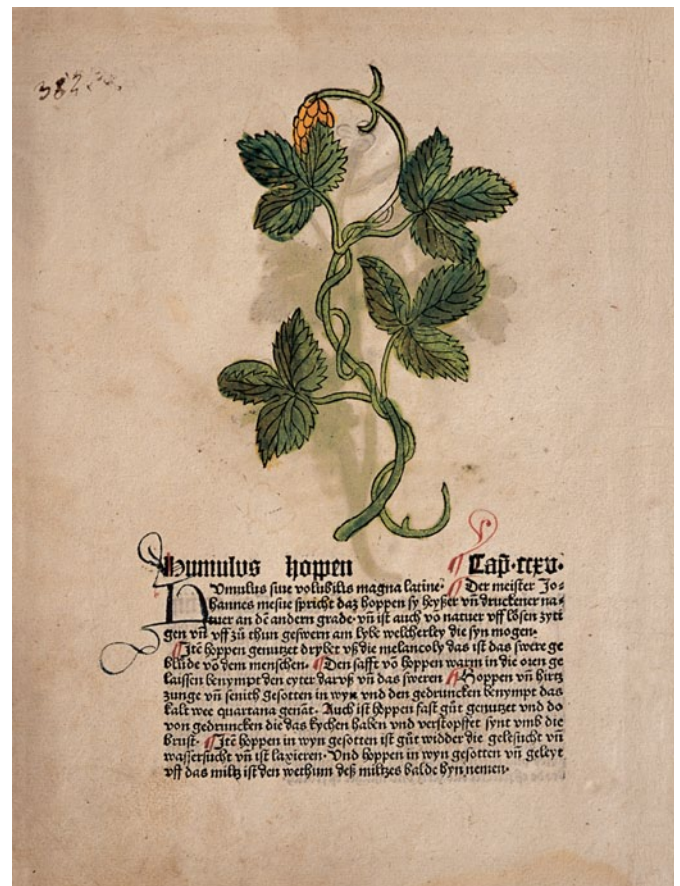 382
Humulus hoppen Cap̄·ccxv·
HVmulus siue volubilis magna latine· Der meister Jo⸗
hannes mesue spricht daz hoppen sy heyßer vn̄ druckener na⸗
tuer an dē andern grade· vn̄ ist auch vō natuer vff lösen zytt
gen vn̄ vff zü thun geswern am lybe welcherley die syn mogen·
Jtē hoppen genutzet drybet vß die melancoly das ist das swere ge
blüde vō dem menschen· Den safft vō hoppen warm in die oren ge
laissen benympt den eyter daruß vn̄ das sweren Hoppen vn̄ hirtz
zunge vn̄ senith gesotten in wyn vnd den gedruncken benympt das
kalt wee quartana genāt· Auch ist hoppen fast güt genutzet vnd do
von gedruncken die das kychen haben vnd verstopffet synt vmb die
brust· Jtē hoppen in wyn gesotten ist güt widder die gelesücht vn̄
wassersucht vn̄ ist laxieren· Vnd hoppen in wyn gesotten vn̄ geleyt
vff das miltz ist den wethum deß miltzes balde hyn nemen·